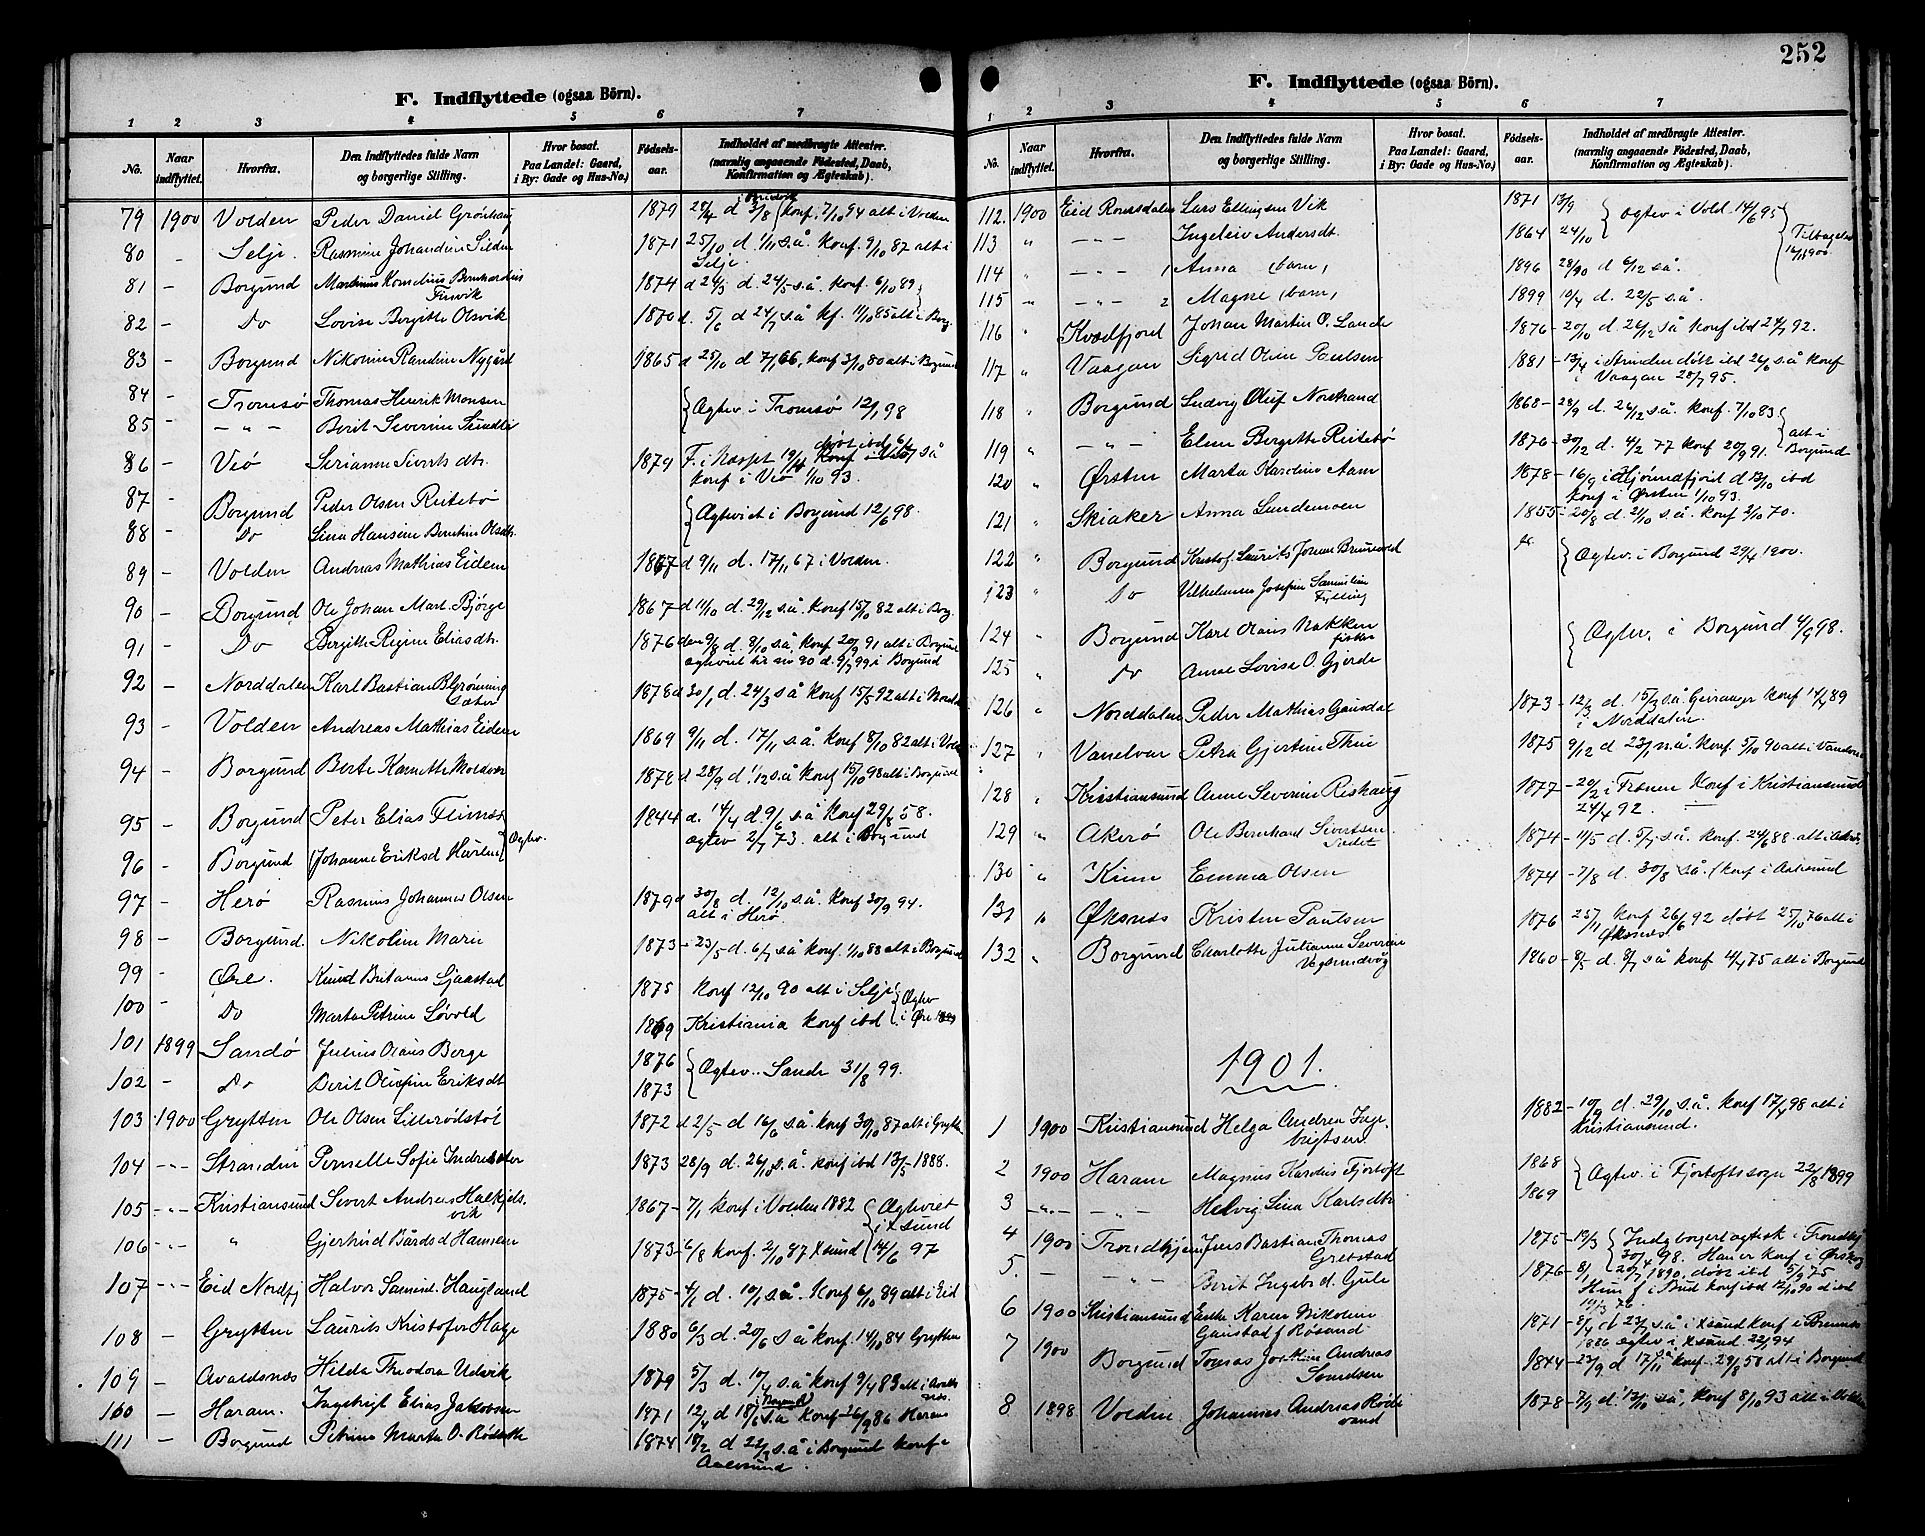 252
F. Indflyttede (ogsaa Börn).
1 2 3 4 5 6 7
No. Naar indflyttet. Hvorfra. Den Indflyttedes fulde Navn og borgerlige Stilling. Hvor bosat. Paa Landet: Gaard, i By: Gade og Hus-No.) Fødsels-aar. Indholdet af medbragte Attester. (navnlig angaaende Fødested, Daab, Konfirmation og Ægteskab).
79 1900 Volden Peder Daniel Grönhaug 1879 28/4 d 3/8 konf. 7/10 94 alt i Volden
80 - Selje Rasmine Johandine Silden 1871 25/10 d. 1/11 s.å. konf. 9/10 87 alt i
Selje.
81 - Borgund Martinus Kornelius Bernhardus 1874 d 24/3 d. 24/5 s.å. konf. 6/10 89
82 - Do Lovise Bergitte Olsvik 1870 d. 5/6 d 24/7 s.å kf. 11/10 85 alt i Borg.
83 - Borgund Nikoline Randine Nygård 1865 d 25/10 d 7/1 66, konf 3/10 80 alt i Borgund
84 - Tromsø Thomas Henrik Monsen Ægtev. i Tromsø 12/1 98
85 - - " - Berit Severine
86 - Veö Serianne Siverts dtr. 1874 F. i Nesset 19/4 döbt ibd 6/7 så
konf i Veö 1/10 93.
87 - Borgund Peder Olsen Reitebö Ægteviet i Borgund 12/6 98.
88 - Do Lina Hansine Berntine Olsdtr.
89 - Volden Andreas Mathias Eidem 1867 d 9/11 d. 17/11 67 i Volden.
90 - Borgund Ole Johan Mart. Bjørge 1867 d 11/10 d. 29/12 s.å. konf 15/10 82 alt i Borg.
91 - Do Bergitte Regine Eliasdtr. 1876 den 9/8 d. 8/10 s.å. konf. 20/9 91 alt i Borgund
ægteviet til no 90 d. 9/7 99 i Borgund
92 - Norddalen Karl Bastian B. Grönning 1878 d 30/1 d. 24/3 s.å konf 15/5 92 alt i Nordd
sæter
93 - Volden Andreas Mathias Eidem 1869 9/11 d. 17/11 s.å konf 8/10 82 alt i Vold
94 - Borgund Berte Karnette Moldvær 1878 d 28/9 d. 1/12 s.å konf 15/10 98 alt i Borgund
95 - Borgund Peter Elias Flisnes 1844 d. 14/4 d. 9/6 s.å konf 29/8 58.
Ægtev. ægtev 2/7 73. alt i Borgund
96 - Borgund Johanne Eriksd
97 - Herö Rasmus Johannes Olsen 1879 d 30/8 d. 12/10 s.å. konf 30/9 94.
alt i Herö.
98 - Borgund Nikoline Marie 1873 - 23/5 d. 6/7 s.å konf 1/10 88 alt i Borgund
99 - Øre. Knud Britanus Sjaastad 1875 konf 12/10 90 alt i Selje Ægtev
100 - Do Marta Petrine Løvold 1869 Kristiania konf ibd i Öre
101 1899 Sandö Julius Olaus Berge 1876 Ægtev. Sande 31/8 99.
102 - Do Berit Oliefine Eriksdtr 1873
103 1900 Grytten Ole Olsen Lillerødstöl 1872 d 2/5 d 16/6 s.å. konf 30/10 87 alt i Grytten
104 -"- Stranden Pernelle Sofie 1873 28/9 d. 26/10 s.å. konf ibd 13/5 1888.
105 -"- Kristiansund Sivert Andreas Halkjels 1867 - 7/1 konf i Volden 1882 Ægteviet
vik i Xsund
106 -"- " Gjertrud Bårds d Hansen 1873 - 6/8 konf. 2/10 87 Xsund 14/6 97
107 -"- Eid Nordfj Halvor Samuel Haugland 1875 - 4/1 d. 10/1 s.å. konf 6/10 89 alt i Eid
108 - Grytten Laurits Kristofer Hage 1880 6/3 d. 20/6 s å konf 14/10 84 Grytten
109 - Avaldsnes Hilda Theodora Udvik 1879 5/3 d. 10/4 s.å konf 9/4 83 alt i Avalds
nes.
110 - Haram. Ingebrigt Elias Jakobsen 1871 12/4 d 18/6 s.å konf 26/9 86 Haram
111 - Borgund Petrine Marta O. 1874 10/2 d 22/3 s.å i Borgund konf i
Aalesund.
F. Indflyttede (ogsaa Börn).
1 2 3 4 5 6 7
No. Naar indflyttet. Hvorfra. Den Indflyttedes fulde Navn og borgerlige Stilling. Hvor bosat. Paa Landet: Gaard, i By: Gade og Hus-No.) Fødsels-aar. Indholdet af medbragte Attester. (navnlig angaaende Fødested, Daab, Konfirmation og Ægteskab).
112. 1900 Eid Romsdalen Lars Ellingsen Vik 1871 13/9 Ægtev i Vold 14/6 95
113 " - " - Ingeleiv Andersdt. 1864 24/10 Tilbage
114 " - " - 1 Anna (barn, 1896 28/90 d 6/12 så.
115 " - " - 2 Magne (barn, 1899 10/4 d. 22/5 s.å.
116 " Kvædfjord Johan Martin O. Lande 1876 - 20/10 d. 26/12 s.å konf ibd 24/7 92.
117 " Vaagan Sigrid Oline Paulsen 1881 - 13/4 i Strinden döbt ibd 26/6 s.å konf
i Vaagan 28/7 95.
118 " Borgund Ludvig Oluf Norstrand 1868 - 28/9 d. 26/12 s.å. konf. 7/10 83
119 " - " - Eline Bergitte Reitebö 1876 - 30/12 d. 4/2 77 konf 20/9 91. alt i Borgund
120 " Ørsten Marta Karoline Aam 1878 - 16/9 i Hjörundfjord d 13/10 ibd
konf i Ørsten 1/10 93.
121 " Skiaker Anna Lundemoen 1855 - 20/8 d. 2/10 s.å. konf 2/10 70.
122 " Borgund Kristof. Laurits Johan Brunevold Ægtev. i Borgund 29/4 1900.
123 " Do Vilhelmine Josefine Samueline
Fylling
124 " Borgund Karl Olaus Nakken Ægtev. i Borgund 4/9 98.
fisker
125 " Do Anne Lovise O. Gjerde
126 " Norddalen Peder Mathias Gausdal 1873 - 12/3 d. 15/3 s.å. Geiranger konf 14/7 89
i Norddalen.
127 " Vanelven Petra Gjertine Thue 1875 9/12 d 23/1 n.å. konf. 5/10 90 alt i Vanelven
128 " Kristiansund Anne Severine Reshaug 1877 - 20/2 i Frænen konf i Kristiansund
24/4 92
129 " Akerö Ole Bernhard Sivertsen 1874 - 11/5 d. 5/7 s.å. konf. 24/6 88 alt i Akerö
130 " Kinn Emma Olsen 1874 - 7/8 d. 30/8 s.å. (konf i Aalesund
131 " Øksnes Kristen Paulsen 1876 25/11 konf 26/6 92 döbt 25/10 76 alt i
Øksnes
132 " Borgund Charlotte Julianne Severine 1860 - 8/5 d. 8/7 s.å konf 4/4 75 alt i Borgund
Vegsundvåg
1901.
1 1900 Kristiansund Helga Andrea Inge- 1882 - 10/9 d. 29/10 s.å. konf 17/4 98 alt i
brigtsen Kristiansund.
2 1900 Haram Magnus Karolus Fjörtoft 1868 Ægtev. i Fjørtoft sogn 22/8 1899
3 -"- - " - Helvig Lina Karlsdtr 1869
4 1900 Trondhjem Jens Bastian Thomas 1875 - 19/3 Indg borgerl ægtesk i Trondhj
Grebstad 30/4 98. Han er konf i Ørskog
5. - - " - Berit Ingebr. d. Gule 1876 - 8/1 20/7 1890. döbt ibd 5/9 75
Hun f i Bud konf ibd 12/10 90 d ibd
19/3 76
6 1900 Kristiansund Enke Karen Nikoline 1871 - 8/4 d 23/7 s.å i Xsund konf i
Gaustad f Røsand 1886 ægtev i Xsund 22/7 94
7 1900 Borgund Tomas Andreas 1844 - 23/9 d 17/11 s.å konf. 29/8 58 alt i Borgund
8 1898 Volden Johannes Andreas Röde 1878 - 7/9 d. 13/10 s.å, konf 8/10 93 alt i Volden
vand